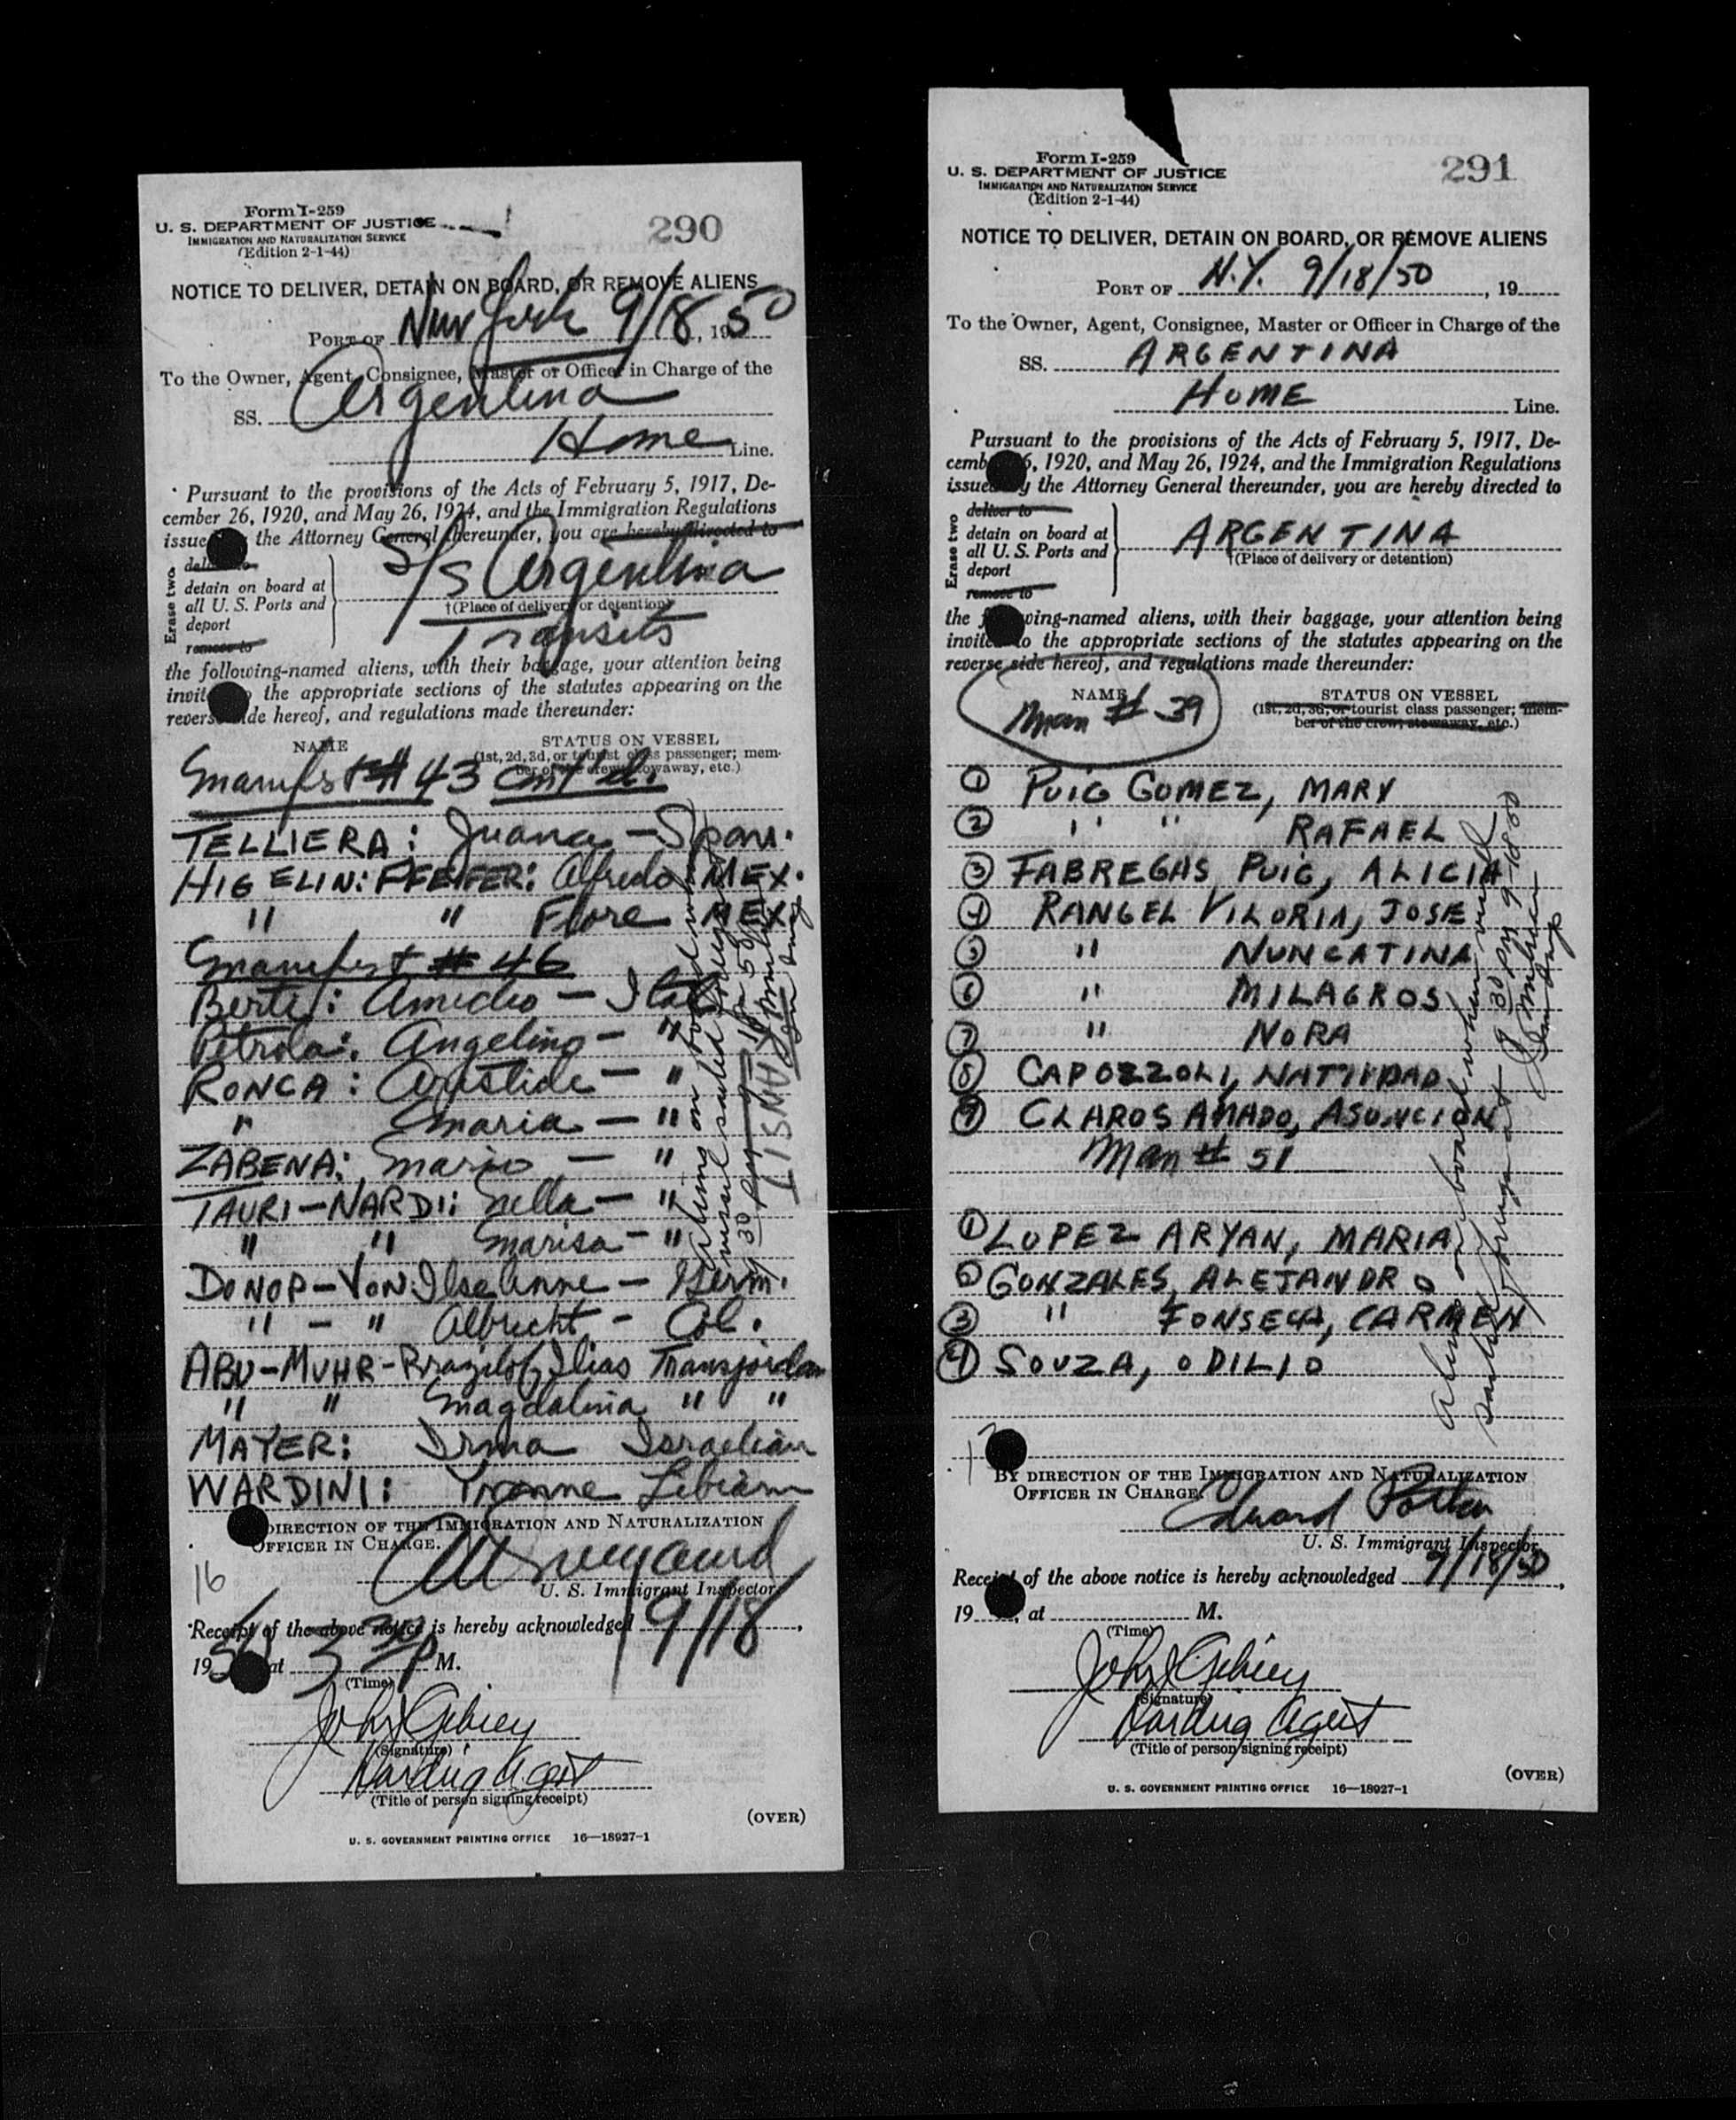 Form I-259
U. S. DEPARTMENT OF JUSTICE
IMMIGRATION AND NATURALIZATION SERVICE
(Edition 2-1-44)
290
NOTICE TO DELIVER, DETAIN ON BOARD, OR REMOVE ALIENS
PORT OF New York 9/18, 1950
To the Owner, Agent, Consignee, Master or Officer in Charge of the
SS. Argentina
Home Line.
Pursuant to the provisions of the Acts of February 5, 1917, De-
cember 26, 1920, and May 26, 1924, and the Immigration Regulations
issued the Attorney General thereunder, you are hereby directed to
Erase two.
deliver to
detain on board at
all U. S. Ports and
deport
remove to
S/S Argentina
†(Place of delivery or detention)
Transits
the following-named aliens, with their baggage, your attention being
the appropriate sections of the statutes appearing on the
reverse side hereof, and regulations made thereunder:
NAME
STATUS ON VESSEL
(1st, 2d, 3d, or tourist class passenger; mem-
ber of the crew, stowaway, etc.)
Manifst # 43 cont'd.
TELLIERA: Juana - Span.
HIGELIN: PFEIFER: Alfredo MEX.
" " Flore MEX.
Manifest # 46
Berte: Amedeo - Ital
Petrola: Angelino - "
RONCA: Aristide - "
" Maria - "
ZABENA: Mario - "
TAURI-NARDI: Nella - "
" " Marisa - "
DONOP-VON: Ilse Anne - Germ.
" - " Albrecht - Col.
ABU-MUHR- Ilias Transjordan
" " Magdalina " "
MAYER: Irma Israelian
WARDINI: Yvonne Libian
Aliens on board when
vessel sailed foreign
TRANSIT
DIRECTION OF THE IMMIGRATION AND NATURALIZATION
OFFICER IN CHARGE.
U. S. Immigrant Inspector
16
Receipt of the above notice is hereby acknowledged 9/18,
1950 at 3 30 P M.
(Time)
John Gibney
(Signature)
Boarding Agent
(Title of person signing receipt)
(OVER)
U. S. GOVERNMENT PRINTING OFFICE 16—18927-1
Form I-259
U. S. DEPARTMENT OF JUSTICE
IMMIGRATION AND NATURALIZATION SERVICE
(Edition 2-1-44)
291
NOTICE TO DELIVER, DETAIN ON BOARD, OR REMOVE ALIENS
PORT OF N.Y. 9/18/50, 19
To the Owner, Agent, Consignee, Master or Officer in Charge of the
SS. ARGENTINA
HOME Line.
Pursuant to the provisions of the Acts of February 5, 1917, De-
cemb 6, 1920, and May 26, 1924, and the Immigration Regulations
issued y the Attorney General thereunder, you are hereby directed to
Erase two
deliver to
detain on board at
all U. S. Ports and
deport
remove to
ARGENTINA
†(Place of delivery or detention)
the following-named aliens, with their baggage, your attention being
invited to the appropriate sections of the statutes appearing on the
reverse side hereof, and regulations made thereunder:
NAME
Man # 39
STATUS ON VESSEL
(1st, 2d, 3d, or tourist class passenger; mem-
ber of the crew, stowaway, etc.)
① PUIG GOMEZ, MARY
② " " RAFAEL
③ FABREGAS PUIG, ALICIA
④ RANGEL VILORIA, JOSE
⑤ " NUNCATINA
⑥ " MILAGROS
⑦ " NORA
⑧ CAPOZZOLI, NATIVIDAD
⑨ CLAROS AMADO, ASUNCION
Man # 51
① LOPEZ ARYAN, MARIA
② GONZALES, ALEJANDRO
③ " FONSECA, CARMEN
④ SOUZA, ODILIO
Aliens on board when vessel
sailed foreign at 9 30 PM 9-18-50
BY DIRECTION OF THE IMMIGRATION AND NATURALIZATION
OFFICER IN CHARGE.
Edward
U. S. Immigrant Inspector
Receipt of the above notice is hereby acknowledged 9/18/50,
19 , at M.
(Time)
John Gibney
(Signature)
Boarding Agent
(Title of person signing receipt)
(OVER)
U. S. GOVERNMENT PRINTING OFFICE 16—18927-1